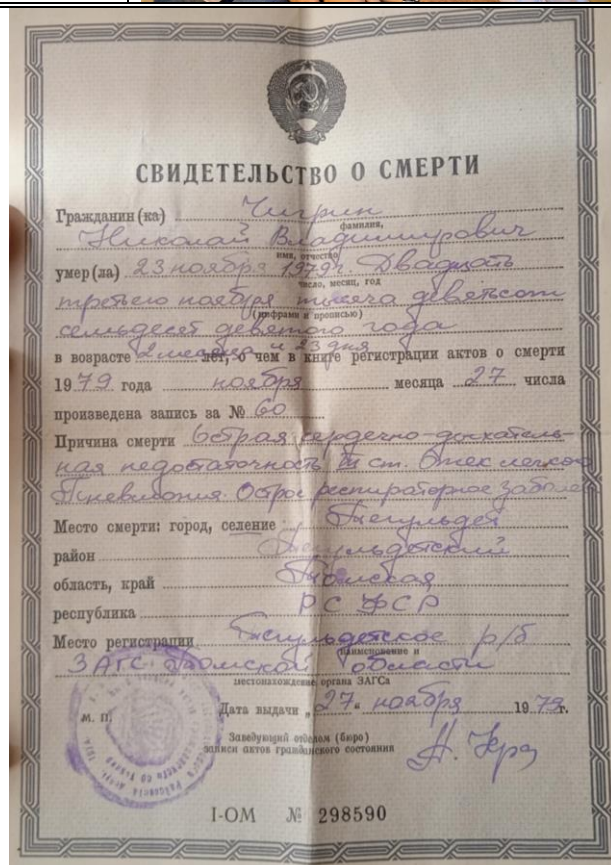 СВИДЕТЕЛЬСТВО О СМЕРТИ
Гражданин (ка) Чигрин
фамилия,
Николай Владимирович
имя, отчество
умер(ла) 23 ноября 1979г. Двадцать
число, месяц, год
третьего ноября тысяча девятсот
(цифрами и прописью)
семьдесят девятого года
в возрасте 2 месяца и 23 дня лет, о чем в книге регистрации актов о смерти
1979 года ноября месяца 27 числа
произведена запись за № 60
Причина смерти Острая сердечно-дыхатель-
ная недостаточность III ст. Отек легких
Пневмония. Острое респираторное заболе
Место смерти: город, селение Тегульдет
район Тегульдетский
область, край Томская
республика РСФСР
Место регистрации Тегульдетское р/б
(наименование и
ЗАГС Томской области
местонахождение органа ЗАГСа
Дата выдачи „27“ ноября 1979г.
М. П.
Заведующий отделом (бюро)
записи актов гражданского состояния
I-ОМ № 298590